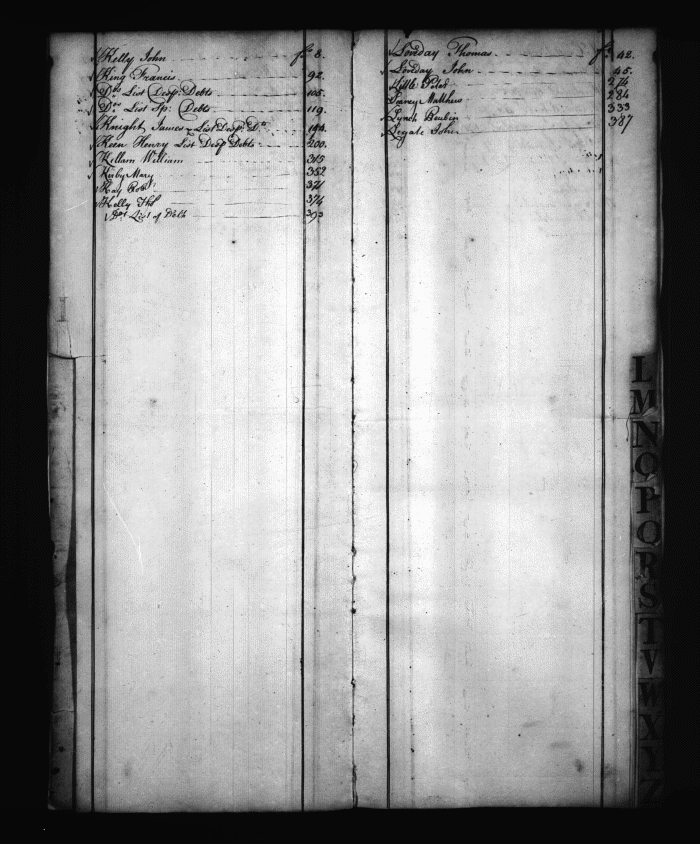 Kelly John fo. 8.
King Francis. 92.
Do. List Desp: Debts 105.
Do. List Sp: Debts 119.
Knight James List Desp: Do. 194.
Keen Henry List Desp Debts 200.
Kellam William 315
Kerby Mary 352
Kay Robt. 371
Kelly Thos 374
Do. List of Debts 393
Loveday Thomas. fo. 42.
Loveday John 45.
Little Peter 274
Matthew 284
Lynch Reubin 333
Legate John 387
I
L
M
N
O
P
Q
R
S
T
V
W
X
Y
Z